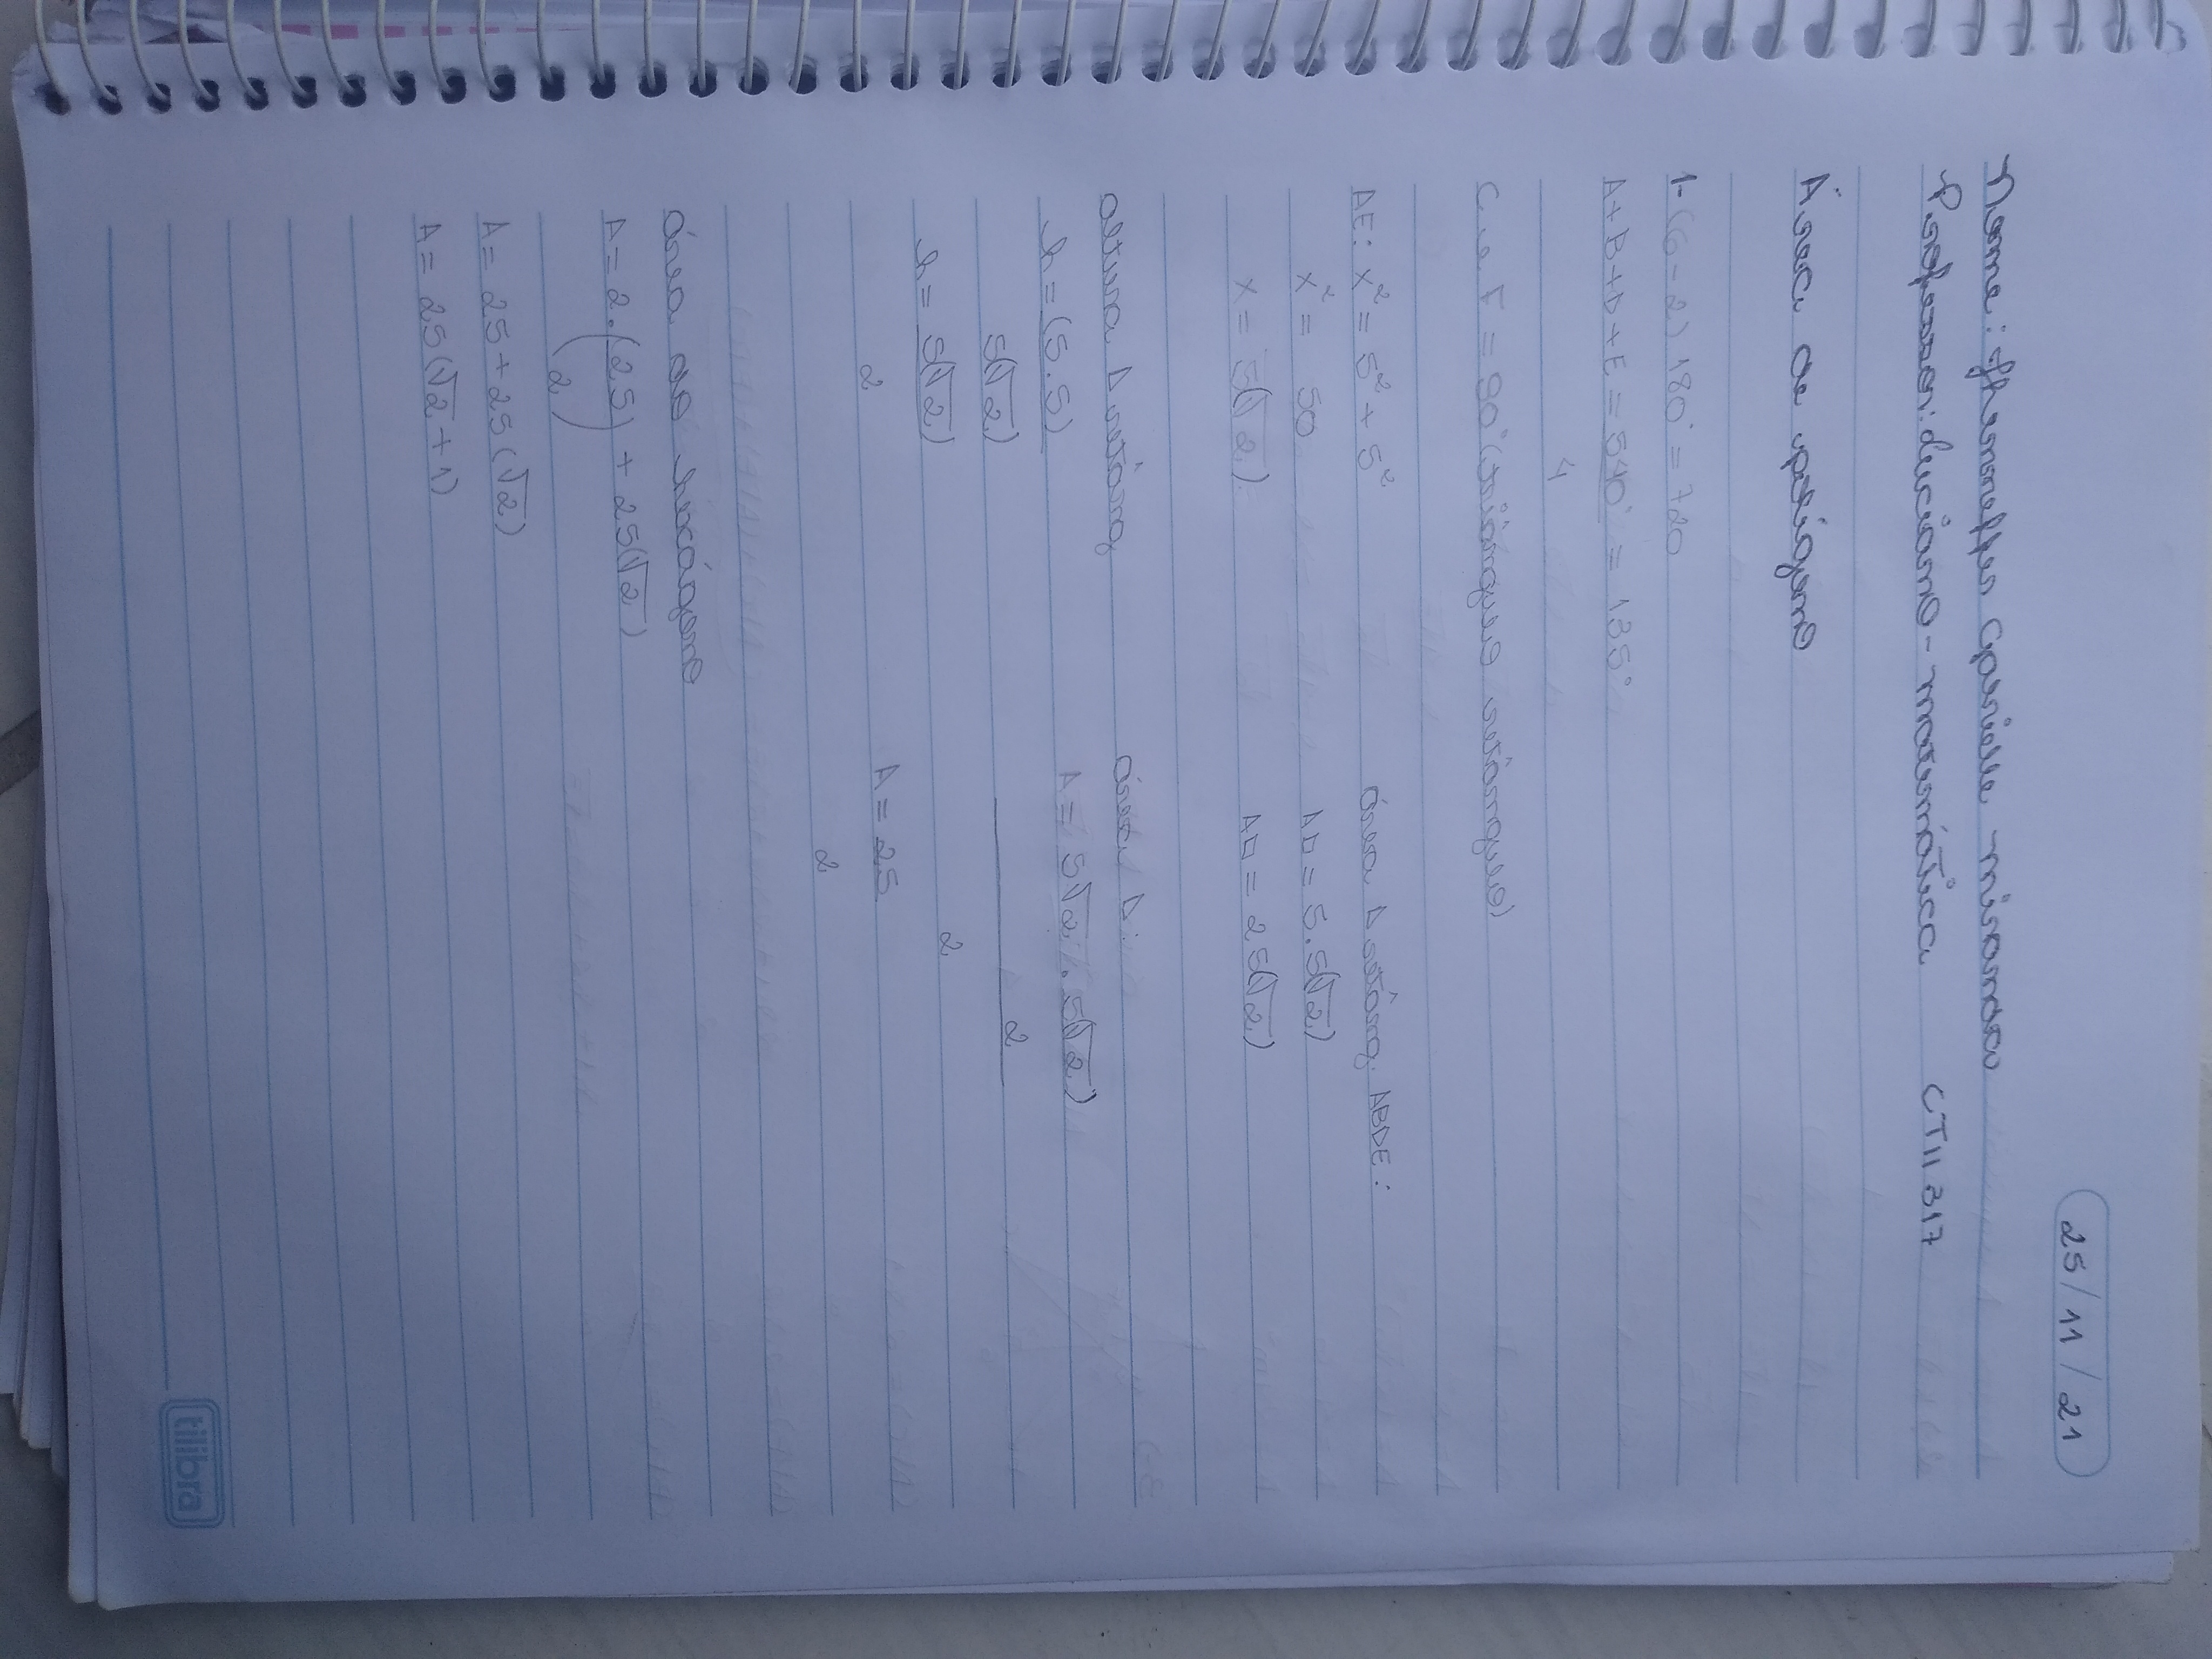 25/11/21
Nome: Jhenneffer Gabrielle Miranda
Professor: Luciano - matemática CTII 317
Área de polígono
1- (6-2) 180° = 720
A+B+D+E = 540° = 135°
4
C e F = 90° (triângulo retângulo)
AE: x² = 5² + 5² área Δ retâng. ABDE:
x² = 50 A□ = 5.5(√2)
x = 5(√2) A□ = 25(√2)
altura Δ retâng área Δ:
h = (5.5) A = 5√2 . 5(√2)
5(√2) 2
h = 5(√2) 2
2 A = 25
2
área do hexágono
A = 2.(25) + 25(√2)
2
A = 25+25(√2)
A = 25(√2+1)
tilibra